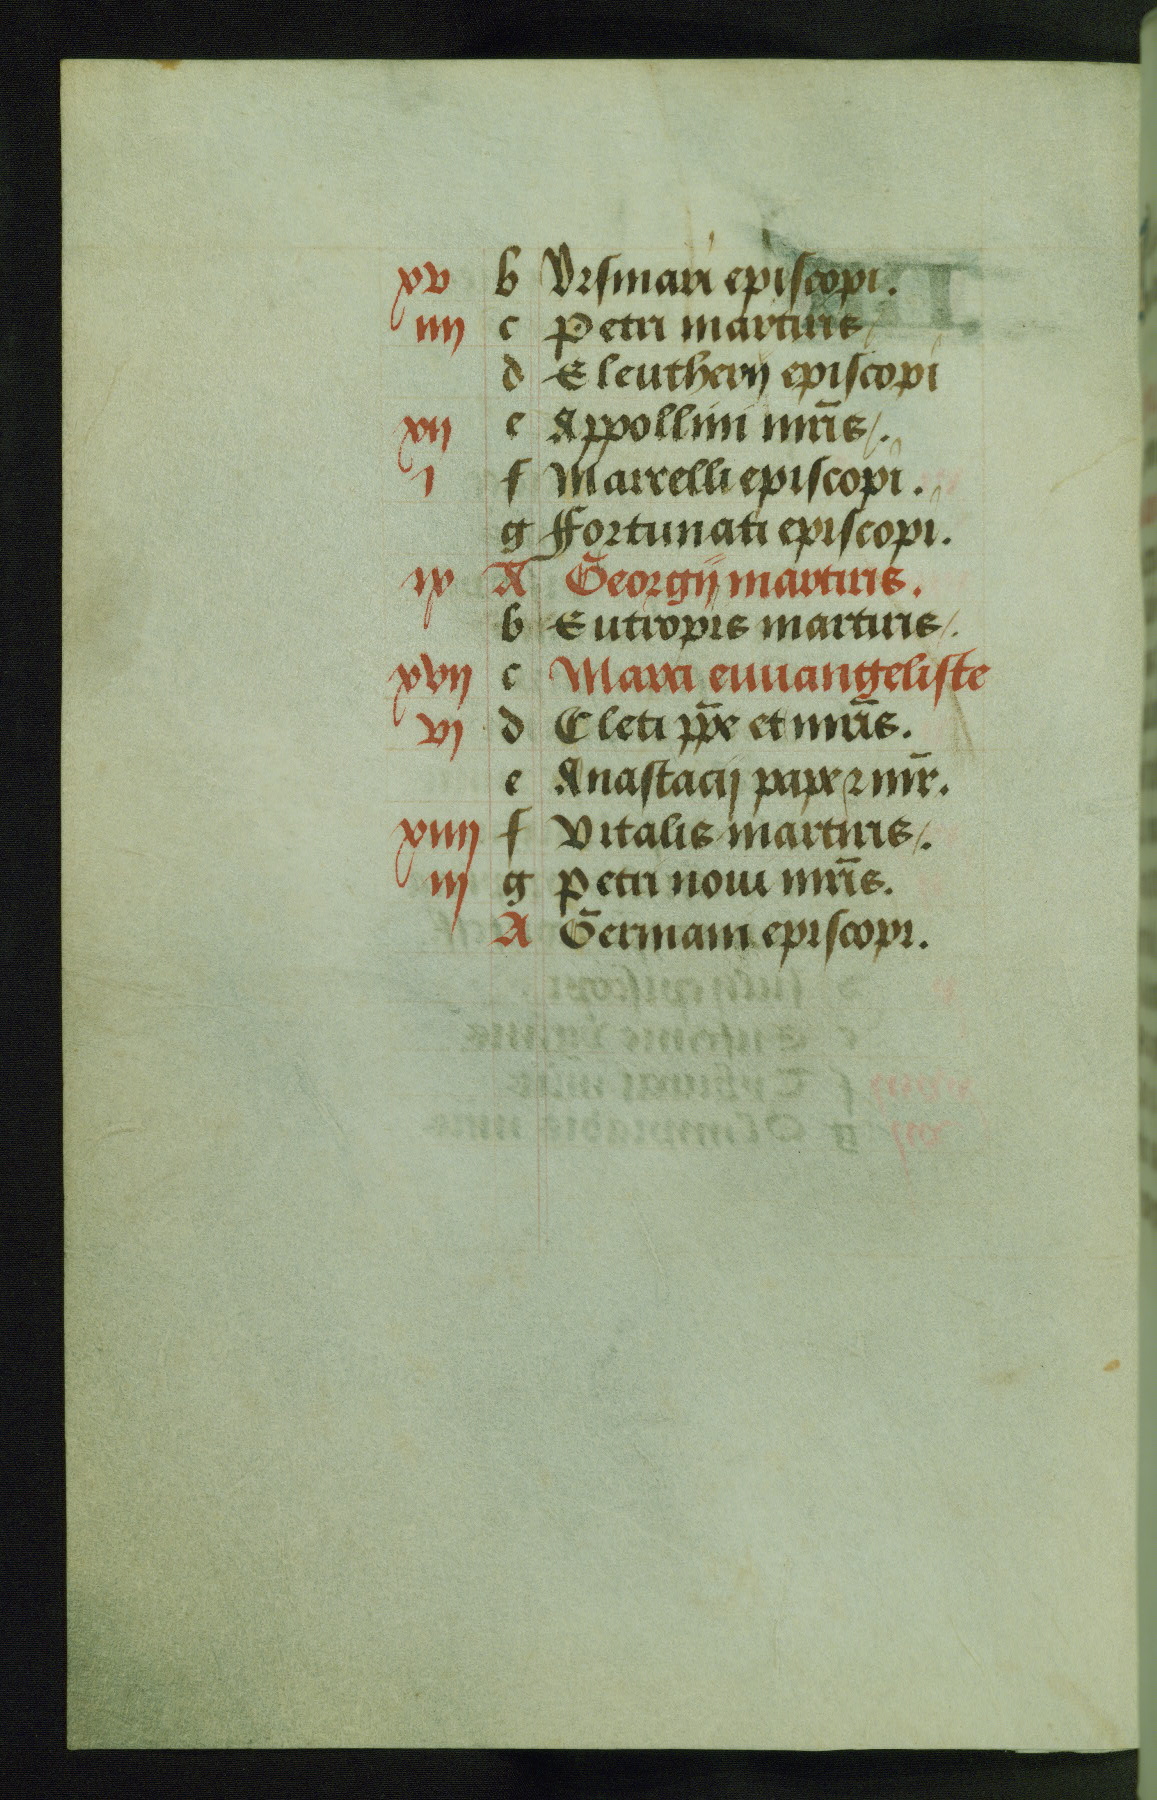 xv b Vrsmari episcopi.
iiij c Petri martiris
d Eleutherij episcopi
xij e Appollini mr̄is.
i f Marcelli episcopi.
g Fortunati episcopi.
ix A Georgij martiris.
b Eutropis martiris.
xvij c Marci euuangeliste
vi d Cleti pp̄e et mr̄is.
e Anastacij pape ⁊ mr̄.
xiiij f Vitalis martiris.
iij g Petri noui mr̄is.
A Germani episcopi.